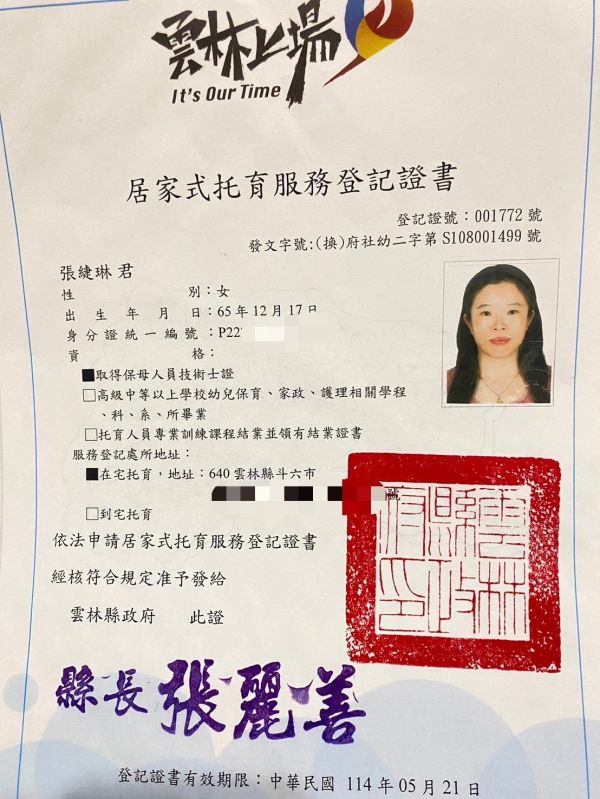 雲林上場
It's Our Time
居家式托育服務登記證書
登記證號：001772 號
發文字號:(換)府社幼二字第 S108001499 號
張緁琳 君
性別：女
出生年月日：65 年 12 月 17 日
身分證統一編號：P22
資格：
■取得保母人員技術士證
□高級中等以上學校幼兒保育、家政、護理相關學程
、科、系、所畢業
□托育人員專業訓練課程結業並領有結業證書
服務登記處所地址：
■在宅托育，地址：640 雲林縣斗六市
號
□到宅托育
依法申請居家式托育服務登記證書
經核符合規定准予發給
雲林縣政府 此證
雲林縣政府印
縣長 張麗善
登記證書有效期限：中華民國 114 年 05 月 21 日